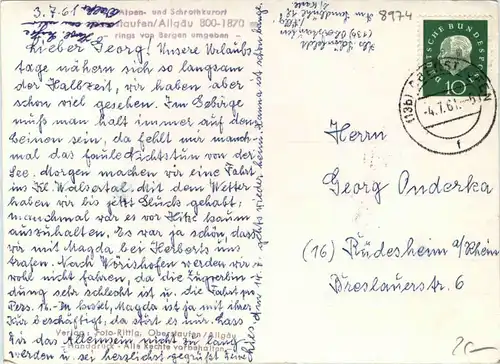 3.7.61
Alpen- und Schrothkurort
Oberstaufen/Allgäu 800-1870 m
rings von Bergen umgeben
Lieber Georg! Unsere Urlaubs-
tage nähern sich so langsam
der Halbzeit, wir haben aber
schon viel gesehen. Im Gebirge
muß man halt immer auf den
Beinen sein, da fehlt mir manch-
mal das faule Nichtstun von der
See. Morgen machen wir eine Fahrt
ins Kl. Walsertal. Mit dem Wetter
haben wir bis jetzt Glück gehabt;
manchmal war es vor Hitze kaum
auszuhalten. Es war ja schön, dass
wir mit Magda bei Herberts uns
trafen. Nach Wörishofen werden wir
wohl nicht fahren, da die Zugverbin-
dung sehr schlecht ist u. die Fahrt pro
Pers. 14.- DM kostet. Magda ist ja mit ihrer
Kur beschäftigt, da stört es nur. Lass
Dir das Alleinsein nicht zu lang
werden u. sei herzlichst gegrüßt Deine
Verlag: Foto-Rittig, Oberstaufen/Allgäu
Handdruck - Alle Rechte vorbehalten
8974
DEUTSCHE BUNDESPOST
10
(13b) OBERSTAUFEN
-4.7.61.
f
Herrn
Georg Onderka
(16) Rüdesheim a/Rhein
Breslauerstr. 6